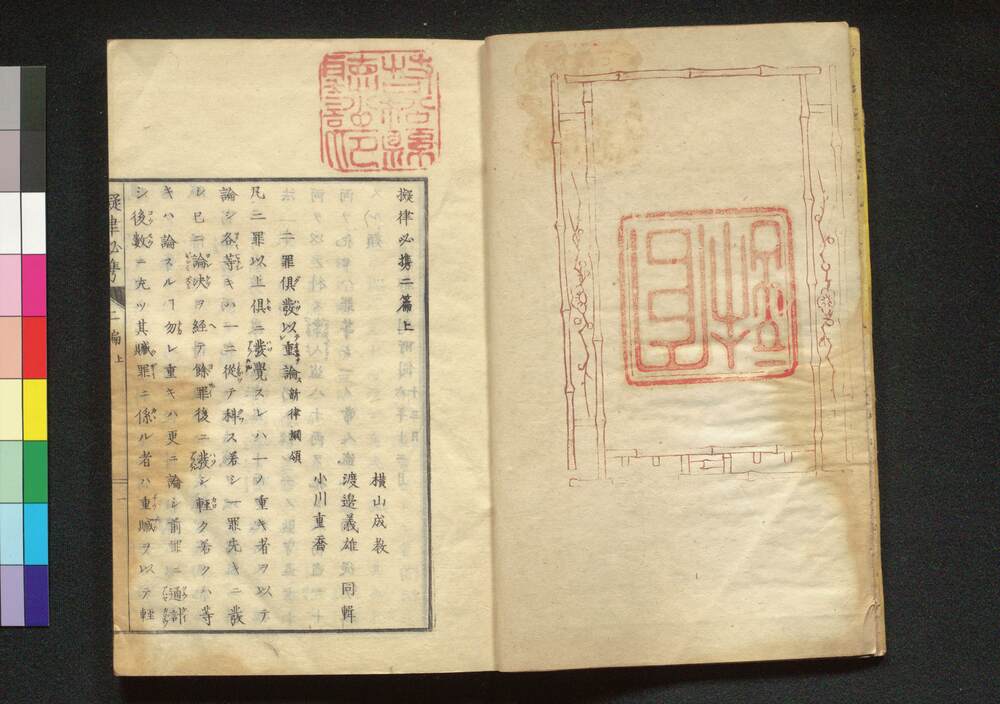 擬律必携二篇上
横山成教
渡邉義雄 同輯
小川重喬
二罪俱發以重論 新律綱領
凡二罪以上俱ニ發覺スレハ一ノ重キ者ヲ以テ
論シ各等キハ一ニ從テ科ス若シ一罪先キニ發
レ已ニ論决ヲ経テ餘罪後ニ發シ軽ク若クハ等
キハ論スルヿ勿レ重キハ更ニ論シ前罪ニ通計
シ後數ニ充ツ其贓罪ニ係ル者ハ重贓ヲ以テ軽
擬律必携 二編 上